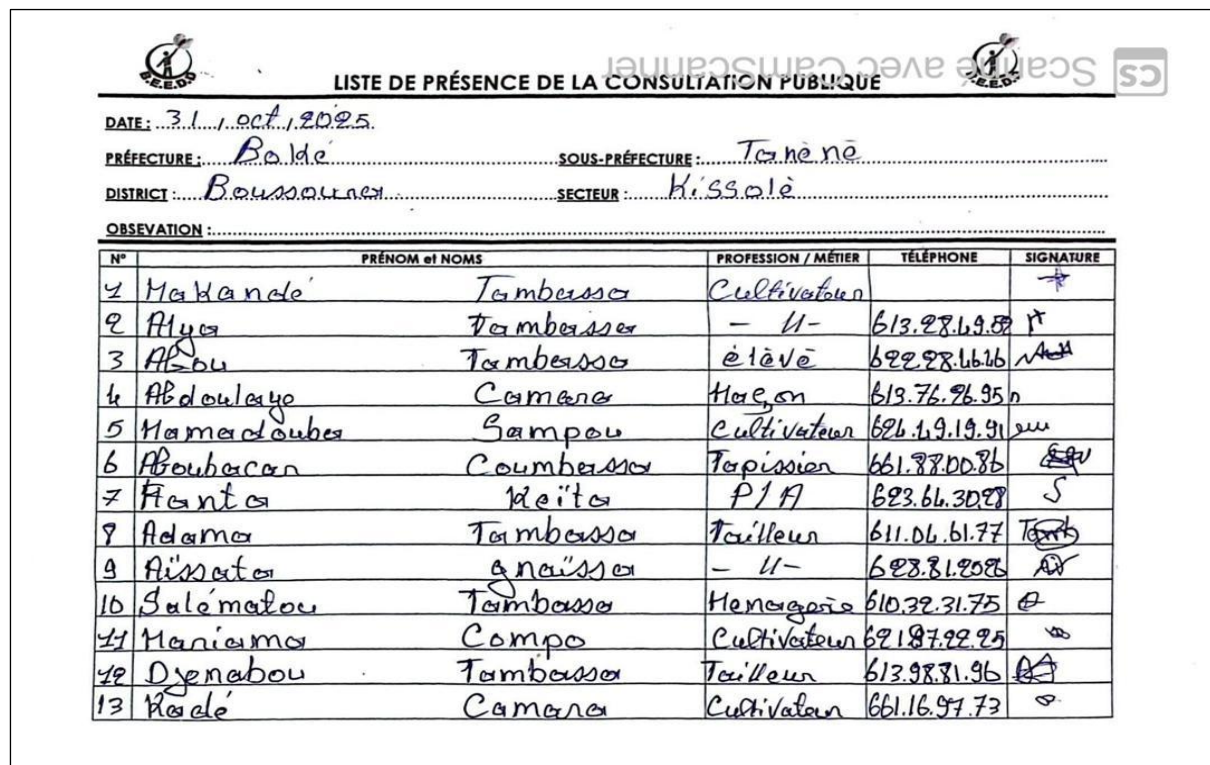 B.E.E.D.D
Scanné avec CamScanner
CS
B.E.E.D.D
LISTE DE PRÉSENCE DE LA CONSULTATION PUBLIQUE
DATE : 31 / oct / 2025
PRÉFECTURE : Boké SOUS-PRÉFECTURE : Tanènè
DISTRICT : Boussoura SECTEUR : Kissolè
OBSEVATION :
N° PRÉNOM et NOMS PROFESSION / MÉTIER TÉLÉPHONE SIGNATURE
1 Makandé Tambassa Cultivateur
2 Alya Tambassa - 11-
3 Abou Tambassa élèvé
4 Abdoulaye Camara Maçon 613.76.26.95
5 Mamadouba Sampou Cultivateur
6 Aboubacar Coumbassa Tapissier 661.88.00.86
7 Keïta P/A 623.64.30.28
8 Adama Tambassa Tailleur 611.04.61.77
9 Aïssata gnaïssa - 11- 628.81.20.26
10 Salématou Tambassa Menagerie 610.32.31.75
11 Mariama Compo Cultivateur 621.87.22.25
12 Djenabou Tambassa Tailleur 613.98.81.96
13 Kadé Camara Cultivateur 661.16.97.73